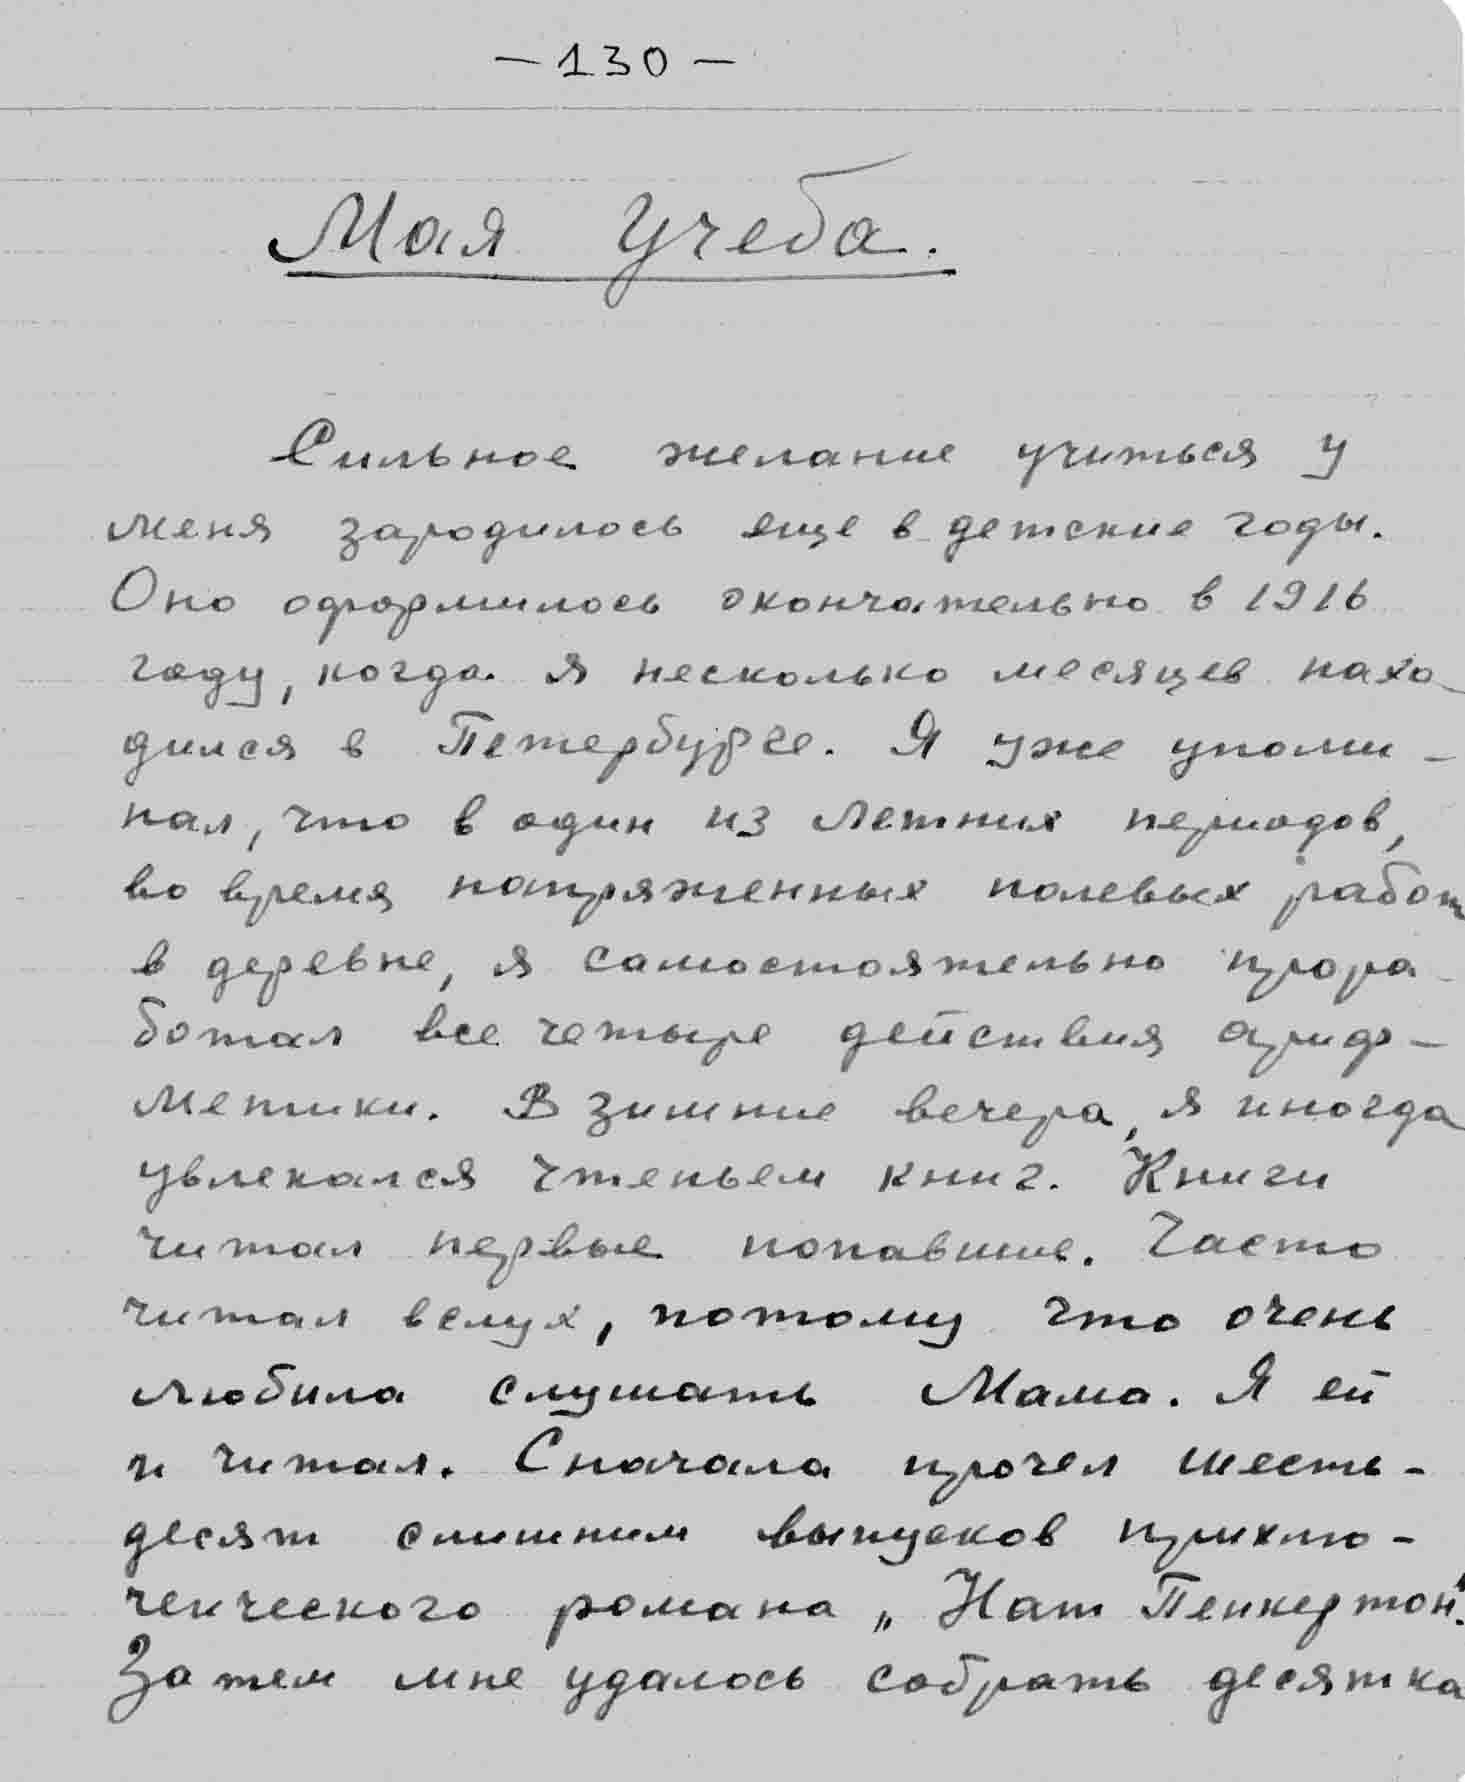 — 130 —
Мая Учеба.
Сильное желание учиться у
меня зародилось еще в детские годы.
Оно оформилось окончательно в 1916
году, когда я несколько месяцев нахо-
дился в Петербурге. Я уже упоми-
нал, что в один из летних периодов,
во время напряженных полевых работ
в деревне, я самостоятельно прора-
ботал все четыре действия ариф-
метики. В зимние вечера, я иногда
увлекался чтеньем книг. Книги
читал первые попавшие. Часто
читал вслух, потому что очень
любила слушать Мама. Я ей
и читал. Сначала прочел шесть-
десят слишним выпусков приклю-
ченческого романа „Нат Пенкертон".
Затем мне удалось собрать десятка